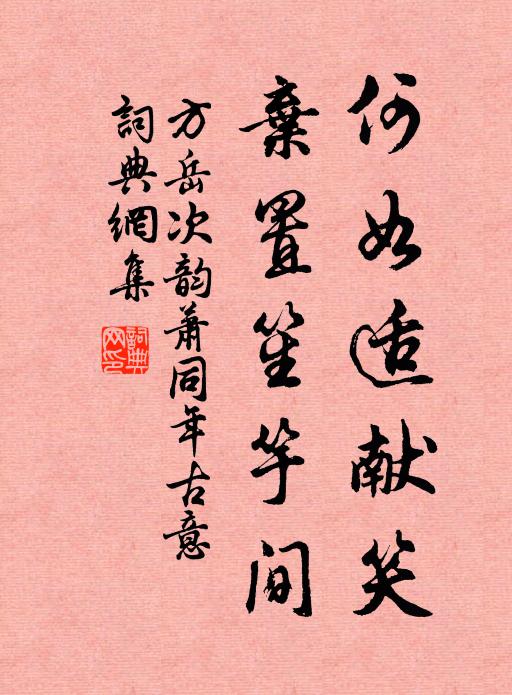 何如适献笑
棄置笙竽間
方岳次韵蕭同年古意
詞典網集
詞典網印